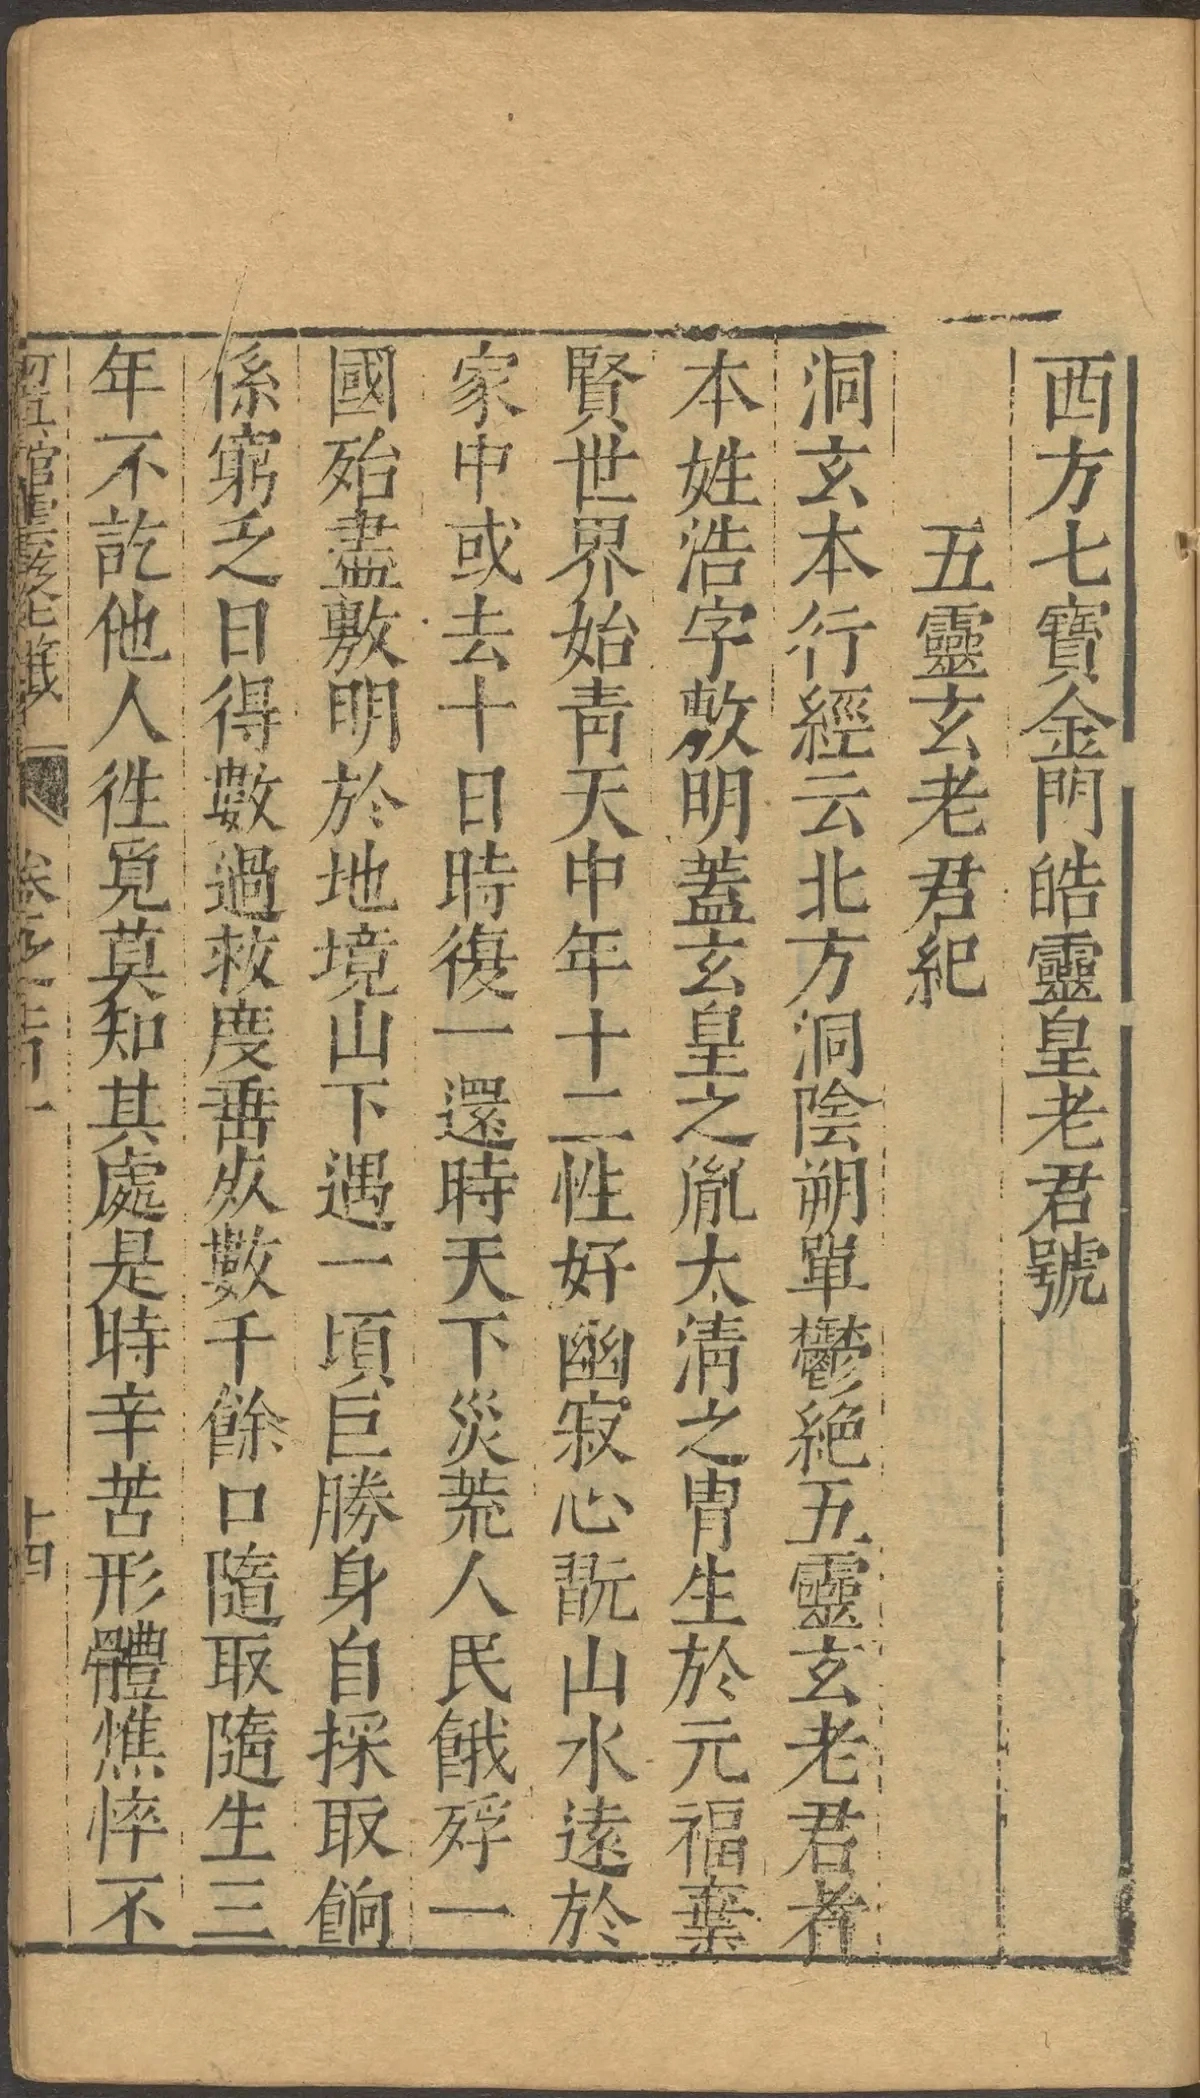 西方七寶金門皓靈皇老君號
五靈玄老君紀
洞玄本行經云北方洞陰朔單鬱絶五靈玄老君者
本姓浩字敷明蓋玄皇之胤太清之胄生於元福棄
賢世界始青天中年十二性好幽寂心翫山水遠於
家中或去十日時復一還時天下災荒人民餓殍一
國殆盡敷明於地境山下遇一頃巨勝身自採取餉
係窮乏日得數過救度垂死數千餘口隨取隨生三
年不訖他人徃覓莫知其處是時辛苦形體燋悴不
卷之
十四